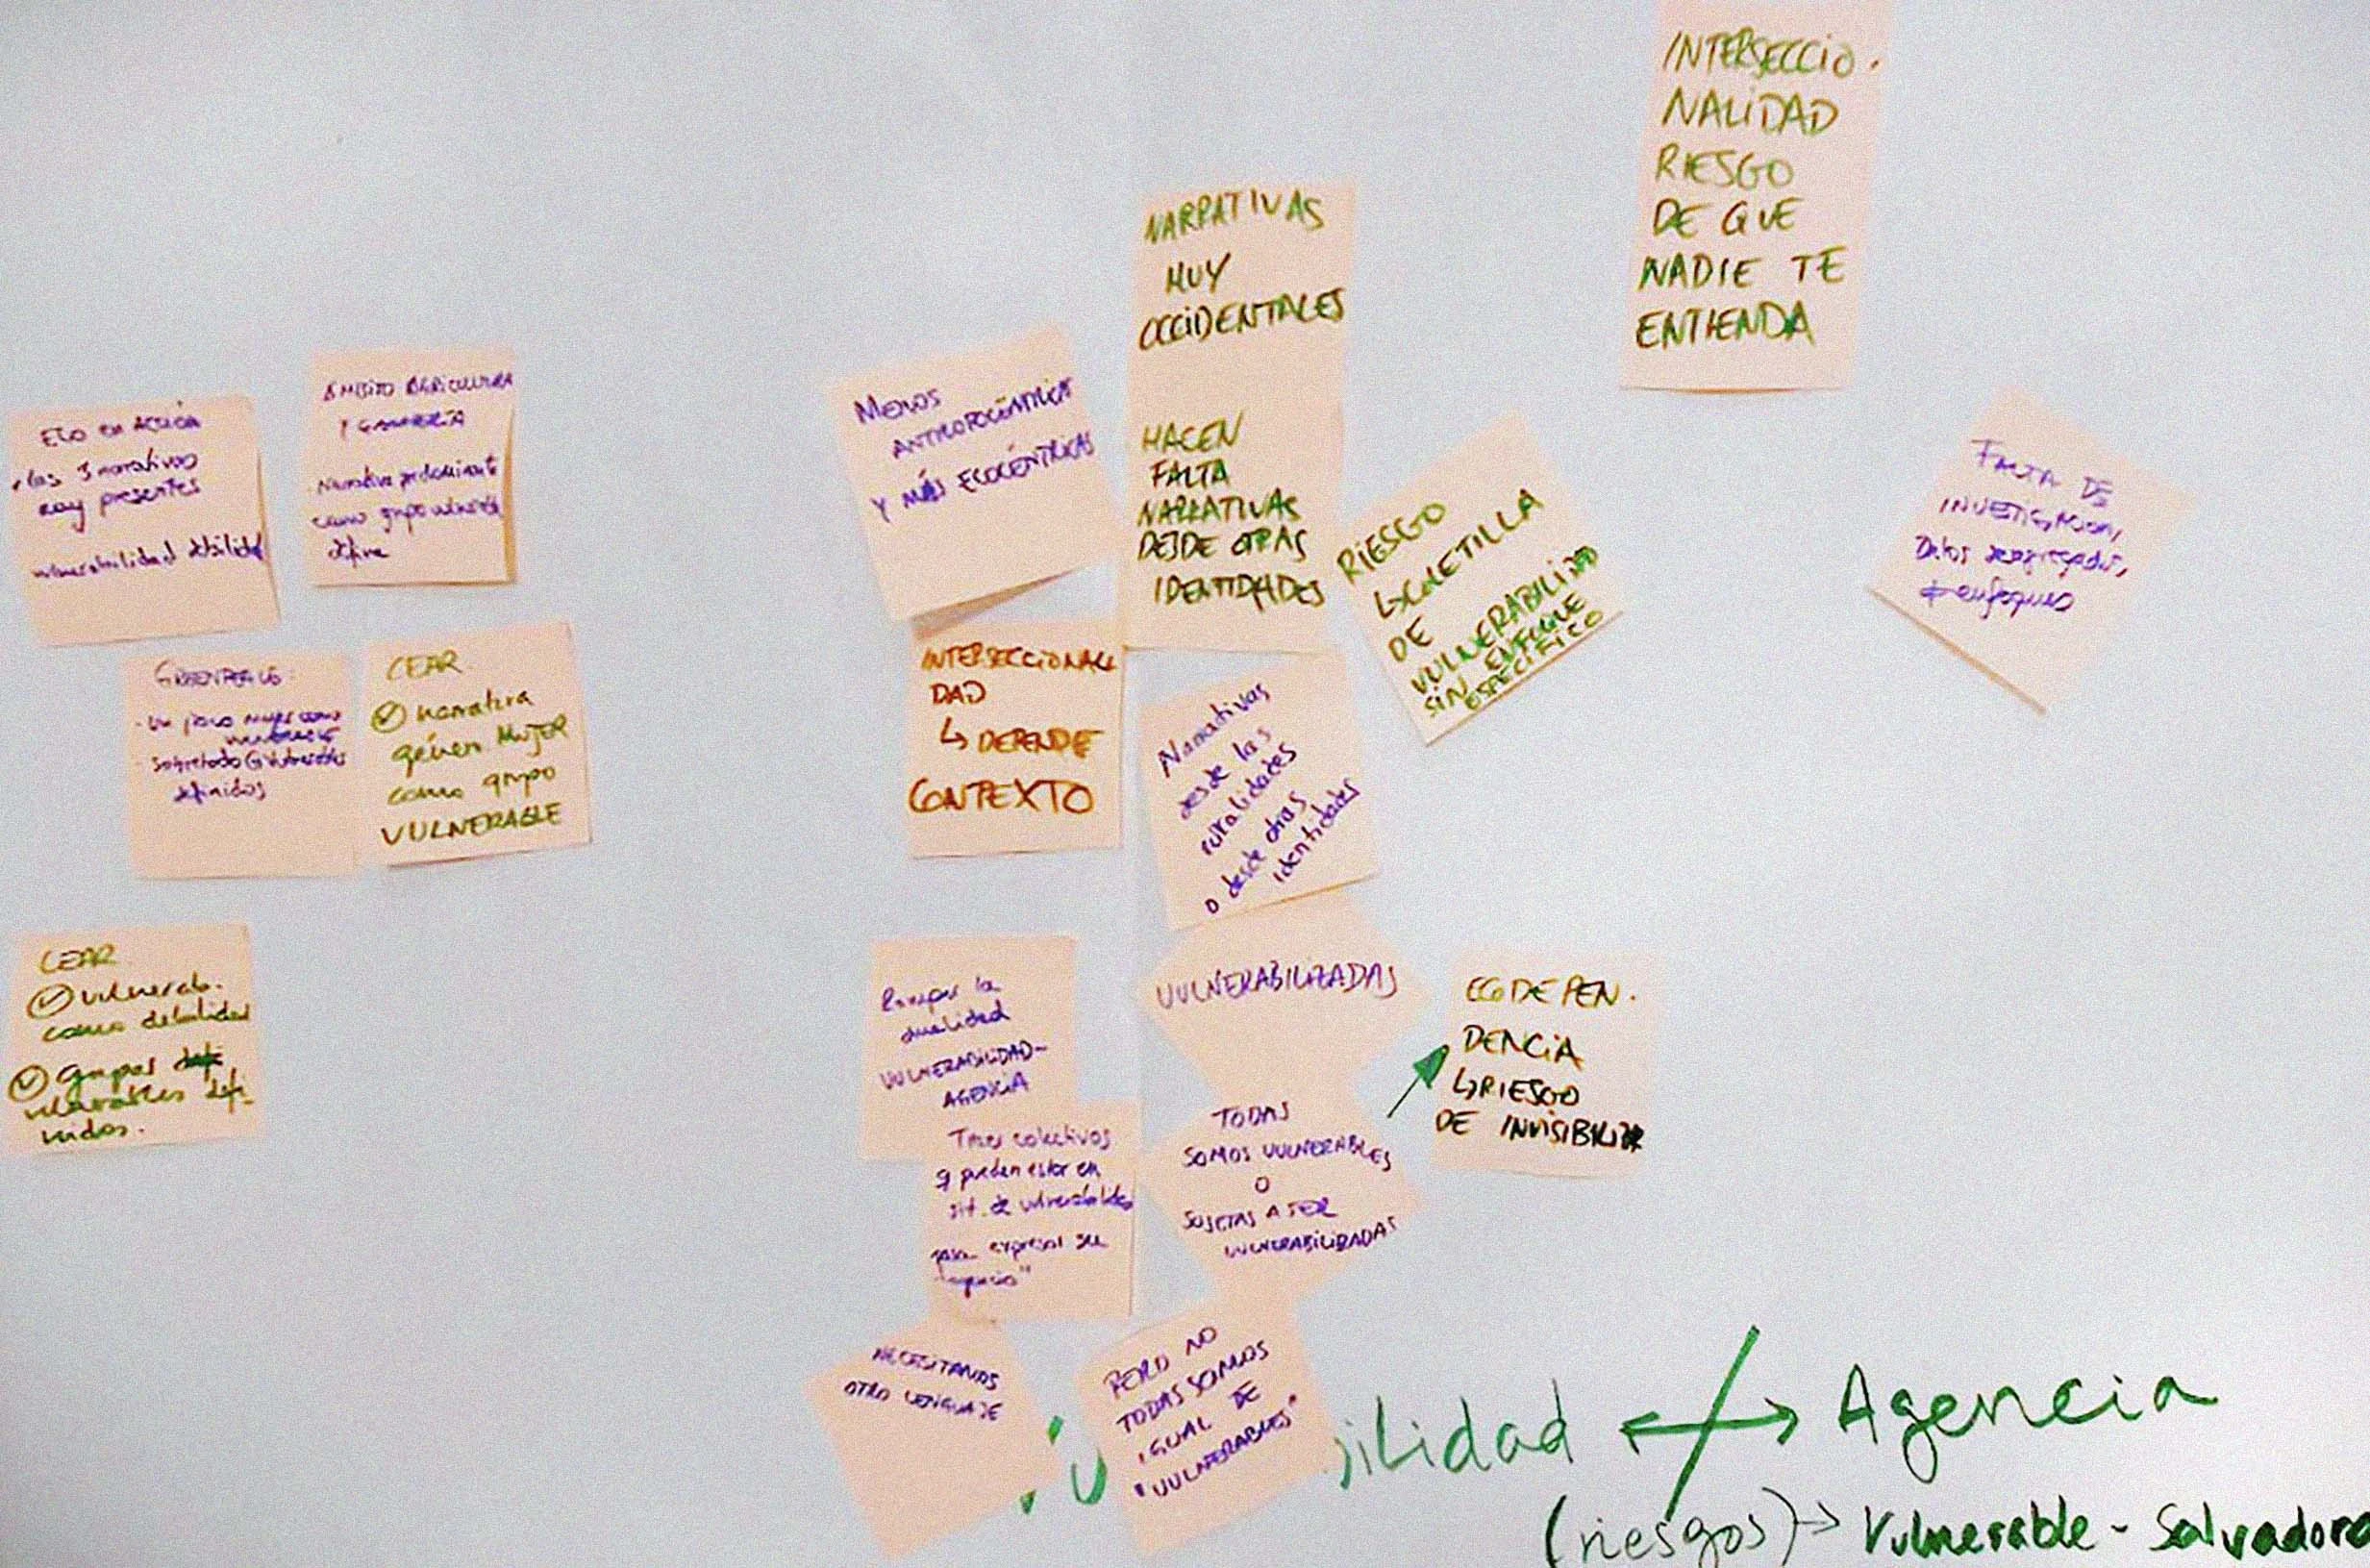 INTERSECCIO.
NALIDAD
RIESGO
DE QUE
NADIE TE
ENTIENDA
NARRATIVAS
MUY
OCCIDENTALES
HACEN
FALTA
NARRATIVAS
DESDE OTRAS
IDENTIDADES
ECO EN ACCIÓN
las 3 narrativas
presentes
vulnerabilidad debilidad
ÁMBITO AGRICULTURA
Y GANADERÍA
Narrativa predominante
como grupo
MENOS
ANTROPOCÉNTRICAS
Y MÁS ECOCÉNTRICAS
RIESGO
↳ COLETILLA
DE
VULNERABILIDAD
SIN ENFOQUE
ESPECÍFICO
FALTA DE
INVESTIGACIÓN,
Datos desagregados,
enfoques
GREENPEACE:
- Un poco mujer como
- Sobretodo
definidos
CEAR
narrativa
género MUJER
como grupo
VULNERABLE
INTERSECCIONALI
DAD
↳ DEPENDE
CONTEXTO
Narrativas
desde las
ruralidades
o desde otras
identidades
CEAR
vulnerab.
como debilidad
Grupos
vulnerables defi-
nidos.
Romper la
dualidad
VULNERABILIDAD-
AGENCIA
VULNERABILIZADAS
ECODEPEN.
DENCIA
↳ RIESGO
DE INVISIBILIZAR
colectivos
q pueden estar en
sit. de vulnerabilidad
para expresar su
"agencia"
TODAS
SOMOS VULNERABLES
O
SUJETAS A SER
VULNERABILIZADAS
NECESITAMOS
OTRO LENGUAJE
PERO NO
TODAS SOMOS
IGUAL DE
"VULNERABLES"
ilidad ↔ Agencia
(riesgos) → Vulnerable - Salvadora